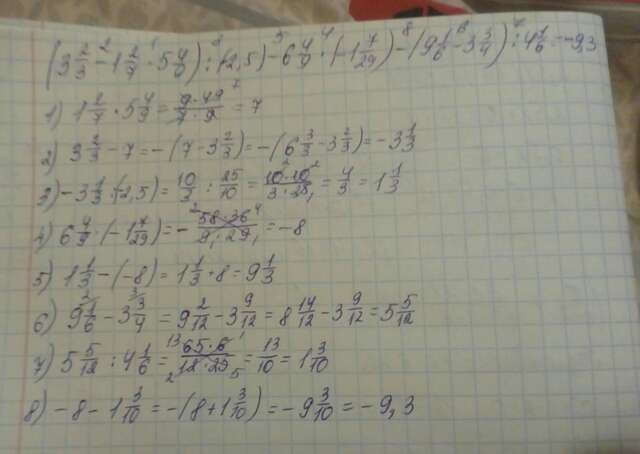 (3 2/3 - 1 2/7 · 5 4/9) : (-2,5) - 6 4/9 · (-1 7/29) - (9 1/6 - 3 3/4) : 4 1/6 = -9,3
1) 1 2/7 · 5 4/9 = 9·49/7·9 = 7
2) 3 2/3 - 7 = -(7 - 3 2/3) = -(6 3/3 - 3 2/3) = -3 1/3
3) -3 1/3 : (-2,5) = 10/3 : 25/10 = 10·10/3·25 = 4/3 = 1 1/3
4) 6 4/9 · (-1 7/29) = - 58·36/9·29 = -8
5) 1 1/3 - (-8) = 1 1/3 + 8 = 9 1/3
6) 9 1/6 - 3 3/4 = 9 2/12 - 3 9/12 = 8 14/12 - 3 9/12 = 5 5/12
7) 5 5/12 : 4 1/6 = 65·6/12·25 = 13/10 = 1 3/10
8) -8 - 1 3/10 = -(8 + 1 3/10) = -9 3/10 = -9,3